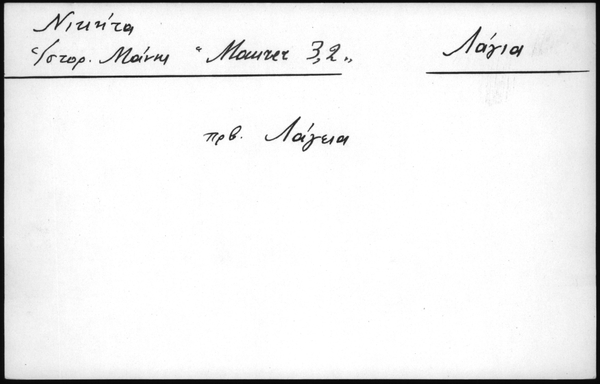 Νικήτα
Ἱστορ. Μάνης "Maurer 3,2„
Λάγια
πρβ. Λάγεια